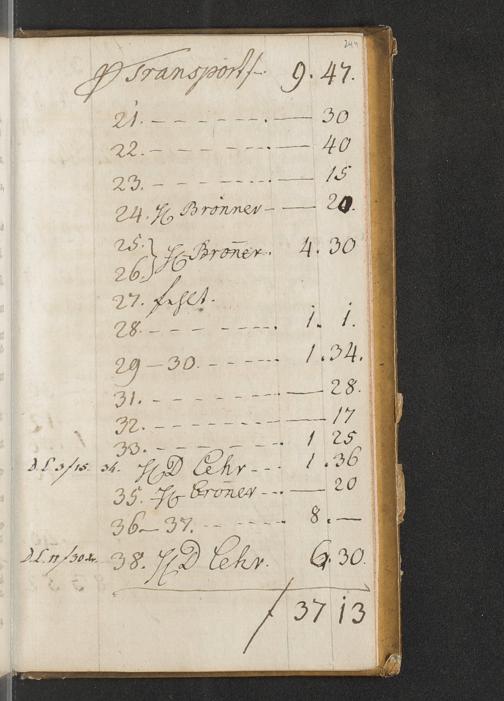 244
Transport 9. 47.
21. — 30
22. — 40
23. — 15
24. H Brönner — 20.
25. } H Broñer. 4. 30
26.
27. fehlt.
28. 1. 1.
29 — 30. 1. 34.
31. — 28.
32. — 17
33. 1 25
D L 3/15. 34. H D Lehr 1. 36
35. H Broñer — 20
36 — 37. 8. —
38. H D Lehr. 6. 30
f 37 13